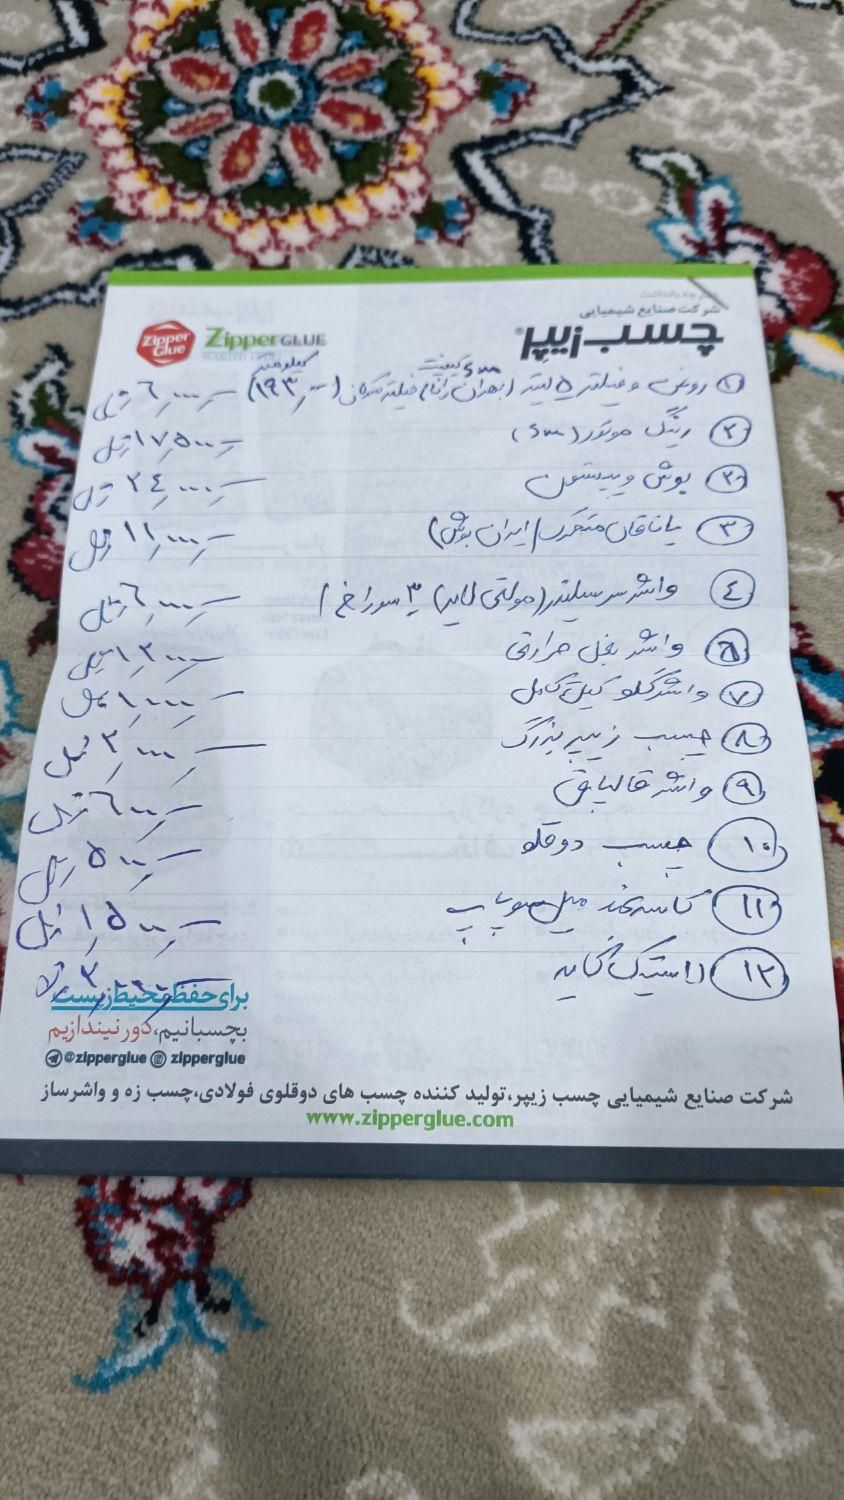 دفترچه یادداشت
شرکت صنایع شیمیایی
چسب زیپر®
Zipper Glue
ZipperGLUE
WANTED GLUE
کیلومتر
① روغن و فیلتر ۵ لیتر (بهران رانام فیلتر سرکان) (۱۹۳٫۰۰۰) ۶٫۰۰۰٫۰۰۰ ریال
② رینگ موتور (sm) ۱۷٫۵۰۰٫۰۰۰ ریال
② بوش و پیستون ۲۴٫۰۰۰٫۰۰۰ ریال
③ یاتاقان متحرک (ایران بوش) ۱۱٫۰۰۰٫۰۰۰ ریال
④ واشر سرسیلندر (مولتی لایر) ۳ سوراخ ۶٫۰۰۰٫۰۰۰ ریال
⑤ واشر بغل حرارتی ۱٫۲۰۰٫۰۰۰ ریال
⑦ واشر گلو کیل کابل ۱٫۰۰۰٫۰۰۰ ریال
⑧ چسب زیپر بزرگ ۲٫۰۰۰٫۰۰۰ ریال
⑨ واشر قالپاق ۶۰۰٫۰۰۰ ریال
⑩ چسب دوقلو ۵۰۰٫۰۰۰ ریال
⑪ کاسه نمد میل سوپاپ ۱٫۵۰۰٫۰۰۰ ریال
⑫ لاستیک گاید ۳٫۰۰۰٫۰۰۰
برای حفظ محیط زیست
بچسبانیم، دور نیندازیم
@zipperglue zipperglue
شرکت صنایع شیمیایی چسب زیپر، تولید کننده چسب های دوقلوی فولادی، چسب زه و واشرساز
www.zipperglue.com